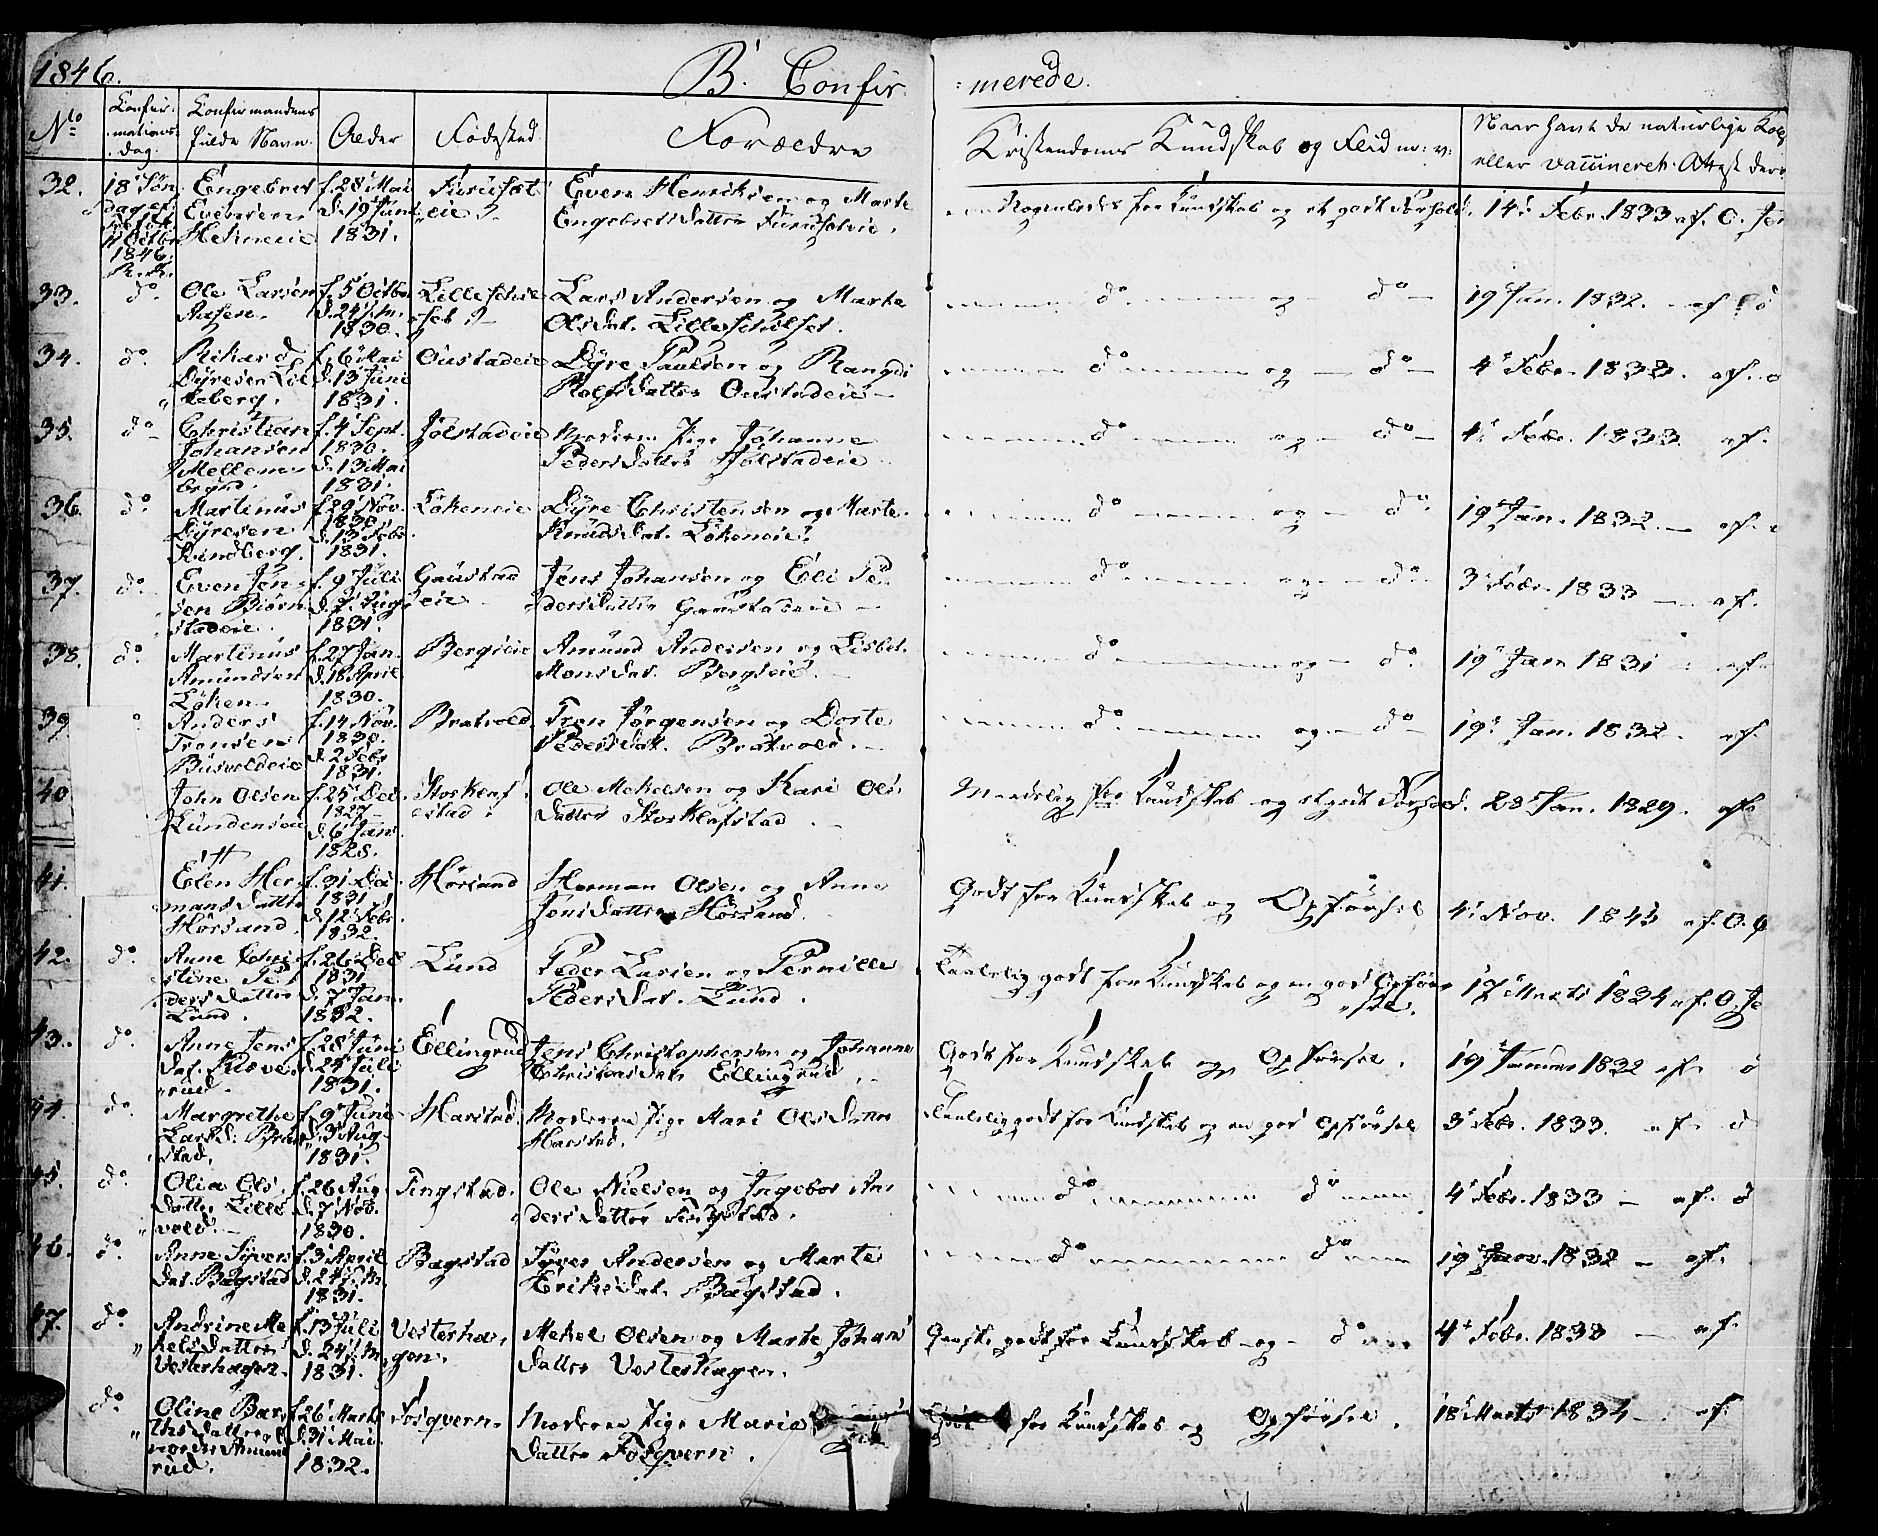 1846.
B. Confir-
merede.
No
Confir-
mations-
dag.
Konfirmandens
fulde Navn.
Alder
Fødested
Forældre
Kristendoms Kundskab og Flid m: v:
Naar havt de naturlige Kop
eller vaccineret. Attest der
32.
18 Søn-
dag ef.
11 Octbr
1846.
Engebret
Evensen
f. 28 Mai
d. 19 Juni
1831.
Furuset
eie
Even Henriksen og Marte
Engebretsdatter Furuseteie.
Nogenledes for Kundskab og et godt Forhold.
14 Febr. 1833 af O.
33.
do.
Ole Larsen
Aasen.
f. 5 Octbr
d. 24 s. M.
1830.
Lars Andersen og Marte
do. og do
19 Jan. 1832. af do
34.
do.
Rikard
Dyresen
f. 6 Mai
d. 13 Juni
1831.
Oustadeie
Dyre Paulsen og Rangdi
Rolfsdatter Oustadeie
do og do
4 Febr. 1833. af.
35.
do
Christian
Johansen
Mellem-
f. 4 Sept.
1830.
d. 13 Mai
1831.
Jølstadeie
Moderen Pige Johanne
Pedersdatter Jølstadeie
do og do
4 Febr. 1833 af.
36.
do
Martinus
Dyresen
Rindberg.
f. 29 Nov.
1830
d. 13 Febr.
1831.
Løkeneie
Dyre Christensen og Marte
Knudsdat. Løkeneie.
do og do.
19 Jan. 1832. af.
37.
do.
Even Jen-
sen Biørn-
stadeie.
f. 9 Juli
d. 7 Aug
1831.
Gaustad
eie
Jens Johansen og Eli Pe-
dersdatter Gaustadeie
do og do
3 Febr. 1833 af.
38.
do.
Martinus
Amundsen
Løken
f. 27 Jan.
d. 18 April
1830.
Bergseie
Amund Andersen og Lisbet
Monsdat. Bergseie.
do og do.
19 Jan 1831 af.
39
Anders
Tronsen
f. 14 Nov.
1830.
d. 2 Febr
1831.
Bratvold.
Tron Jørgensen og Dorte
Pedersdat. Bratvold.
do og do
19 Jan. 1832. af.
40
John Olsen
f. 25 Dec.
1827
d. 6 Jan.
1828.
Ole Mekelsen og Kari Ols-
datter
Maadelig for Kundskab og et godt Forhold.
28 Jan. 1829. af.
41.
Elen Her-
mansdatter
Hørsand.
f. 31 Dec.
1831
d. 12 Febr.
1832.
Hørsand
Herman Olsen og Anne
Jensdatter Hørsand.
Godt for Kundskab og Opførsel
4 Nov. 1845 af. O.
42.
do
Anne Chri-
stine Pe-
dersdatter
Lund.
f. 26 Dec
1831
d. 7 Jan.
1832.
Lund
Peder Larsen og Pernille
Pedersdat. Lund.
Taalelig godt for Kundskab og en god Opfør-
sel.
17 Marts 1834 af. O. Je
43.
do.
Anne Jens-
dat. Kløve-
rud.
f. 28 Juni
d. 24 Juli
1831.
Ellingrud
Jens Christophersen og Johanne
Christensdat. Ellingrud.
Godt for Kundskab og Opførsel.
19 Januar 1832 af.
44.
do.
Margrethe
Larsd.
stad.
f. 9 Juni
d. 3 Aug.
1831.
Harstad
Moderen Pige Mari Olsdatter
Harstad.
Taalelig godt for Kundskab og en god Opførsel
3 Febr. 1833. af. d
45.
do
Olia Ols-
datter Lille-
vold.
f. 26 Aug
d. 7 Nov.
1830.
Tingstad.
Ole Nielsen og Ingebor An-
dersdatter Tingstad.
do do
4 Febr. 1833 af. d
46.
do.
Anne Syvers-
dat. Bagstad
f. 3 April
d. 24 s. M
1831.
Bagstad
Syver Andersen og Marte
Eriksdat. Bagstad.
do do
19 Jan. 1832 af.
47.
do
Andrine Me-
kelsdatter
Vesterhagen.
f. 13 Juli
d. 24 s. M
1831.
Vesterha-
gen.
Mekel Olsen og Marte Johans-
datter Vesterhagen.
Ganske godt for Kundskab og do
4 Febr. 1833 af.
do
Oline Bar-
rud.
f. 26 Marts
d. 31 Mai
1832.
Fosqvern
Moderen Pige Maria
datter Fosqvern.
Godt for Kundskab og Opførsel.
18 Marts 1834 af.